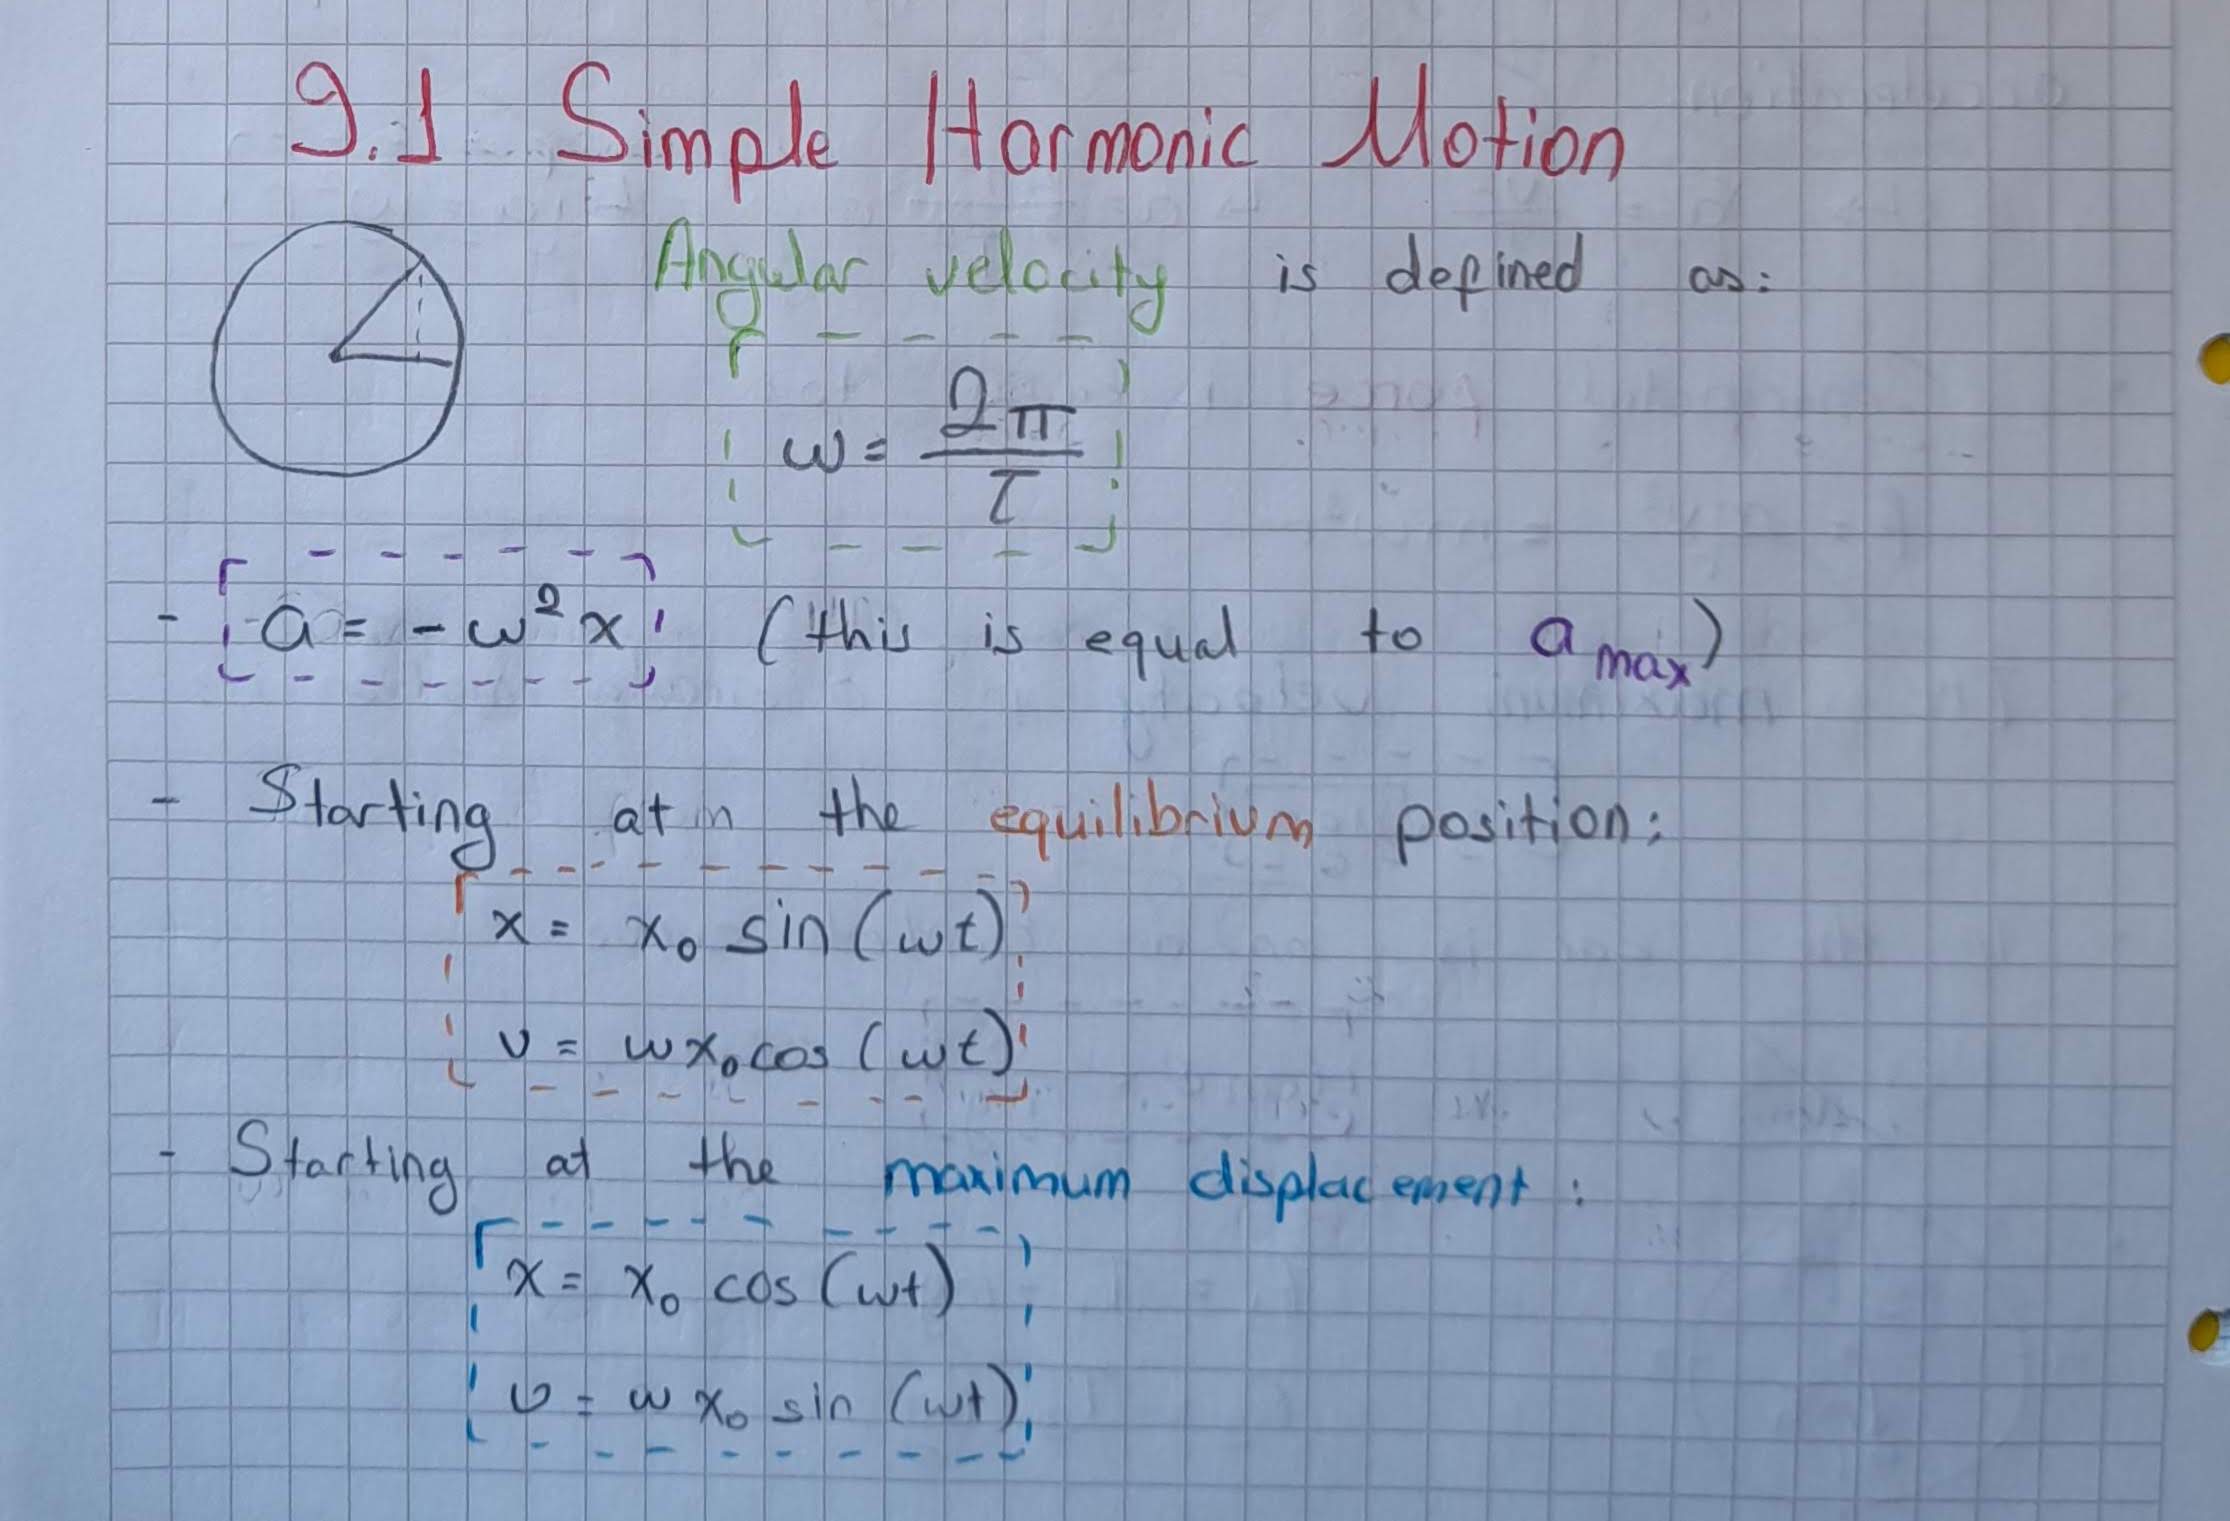 9.1 Simple Harmonic Motion
Angular velocity is defined as:
ω = 2π / T
- a = - ω² x (this is equal to a max)
- Starting at in the equilibrium position:
x = x₀ sin (ωt)
v = ωx₀ cos (ωt)
- Starting at the maximum displacement :
x = x₀ cos (ωt)
v = ω x₀ sin (ωt)